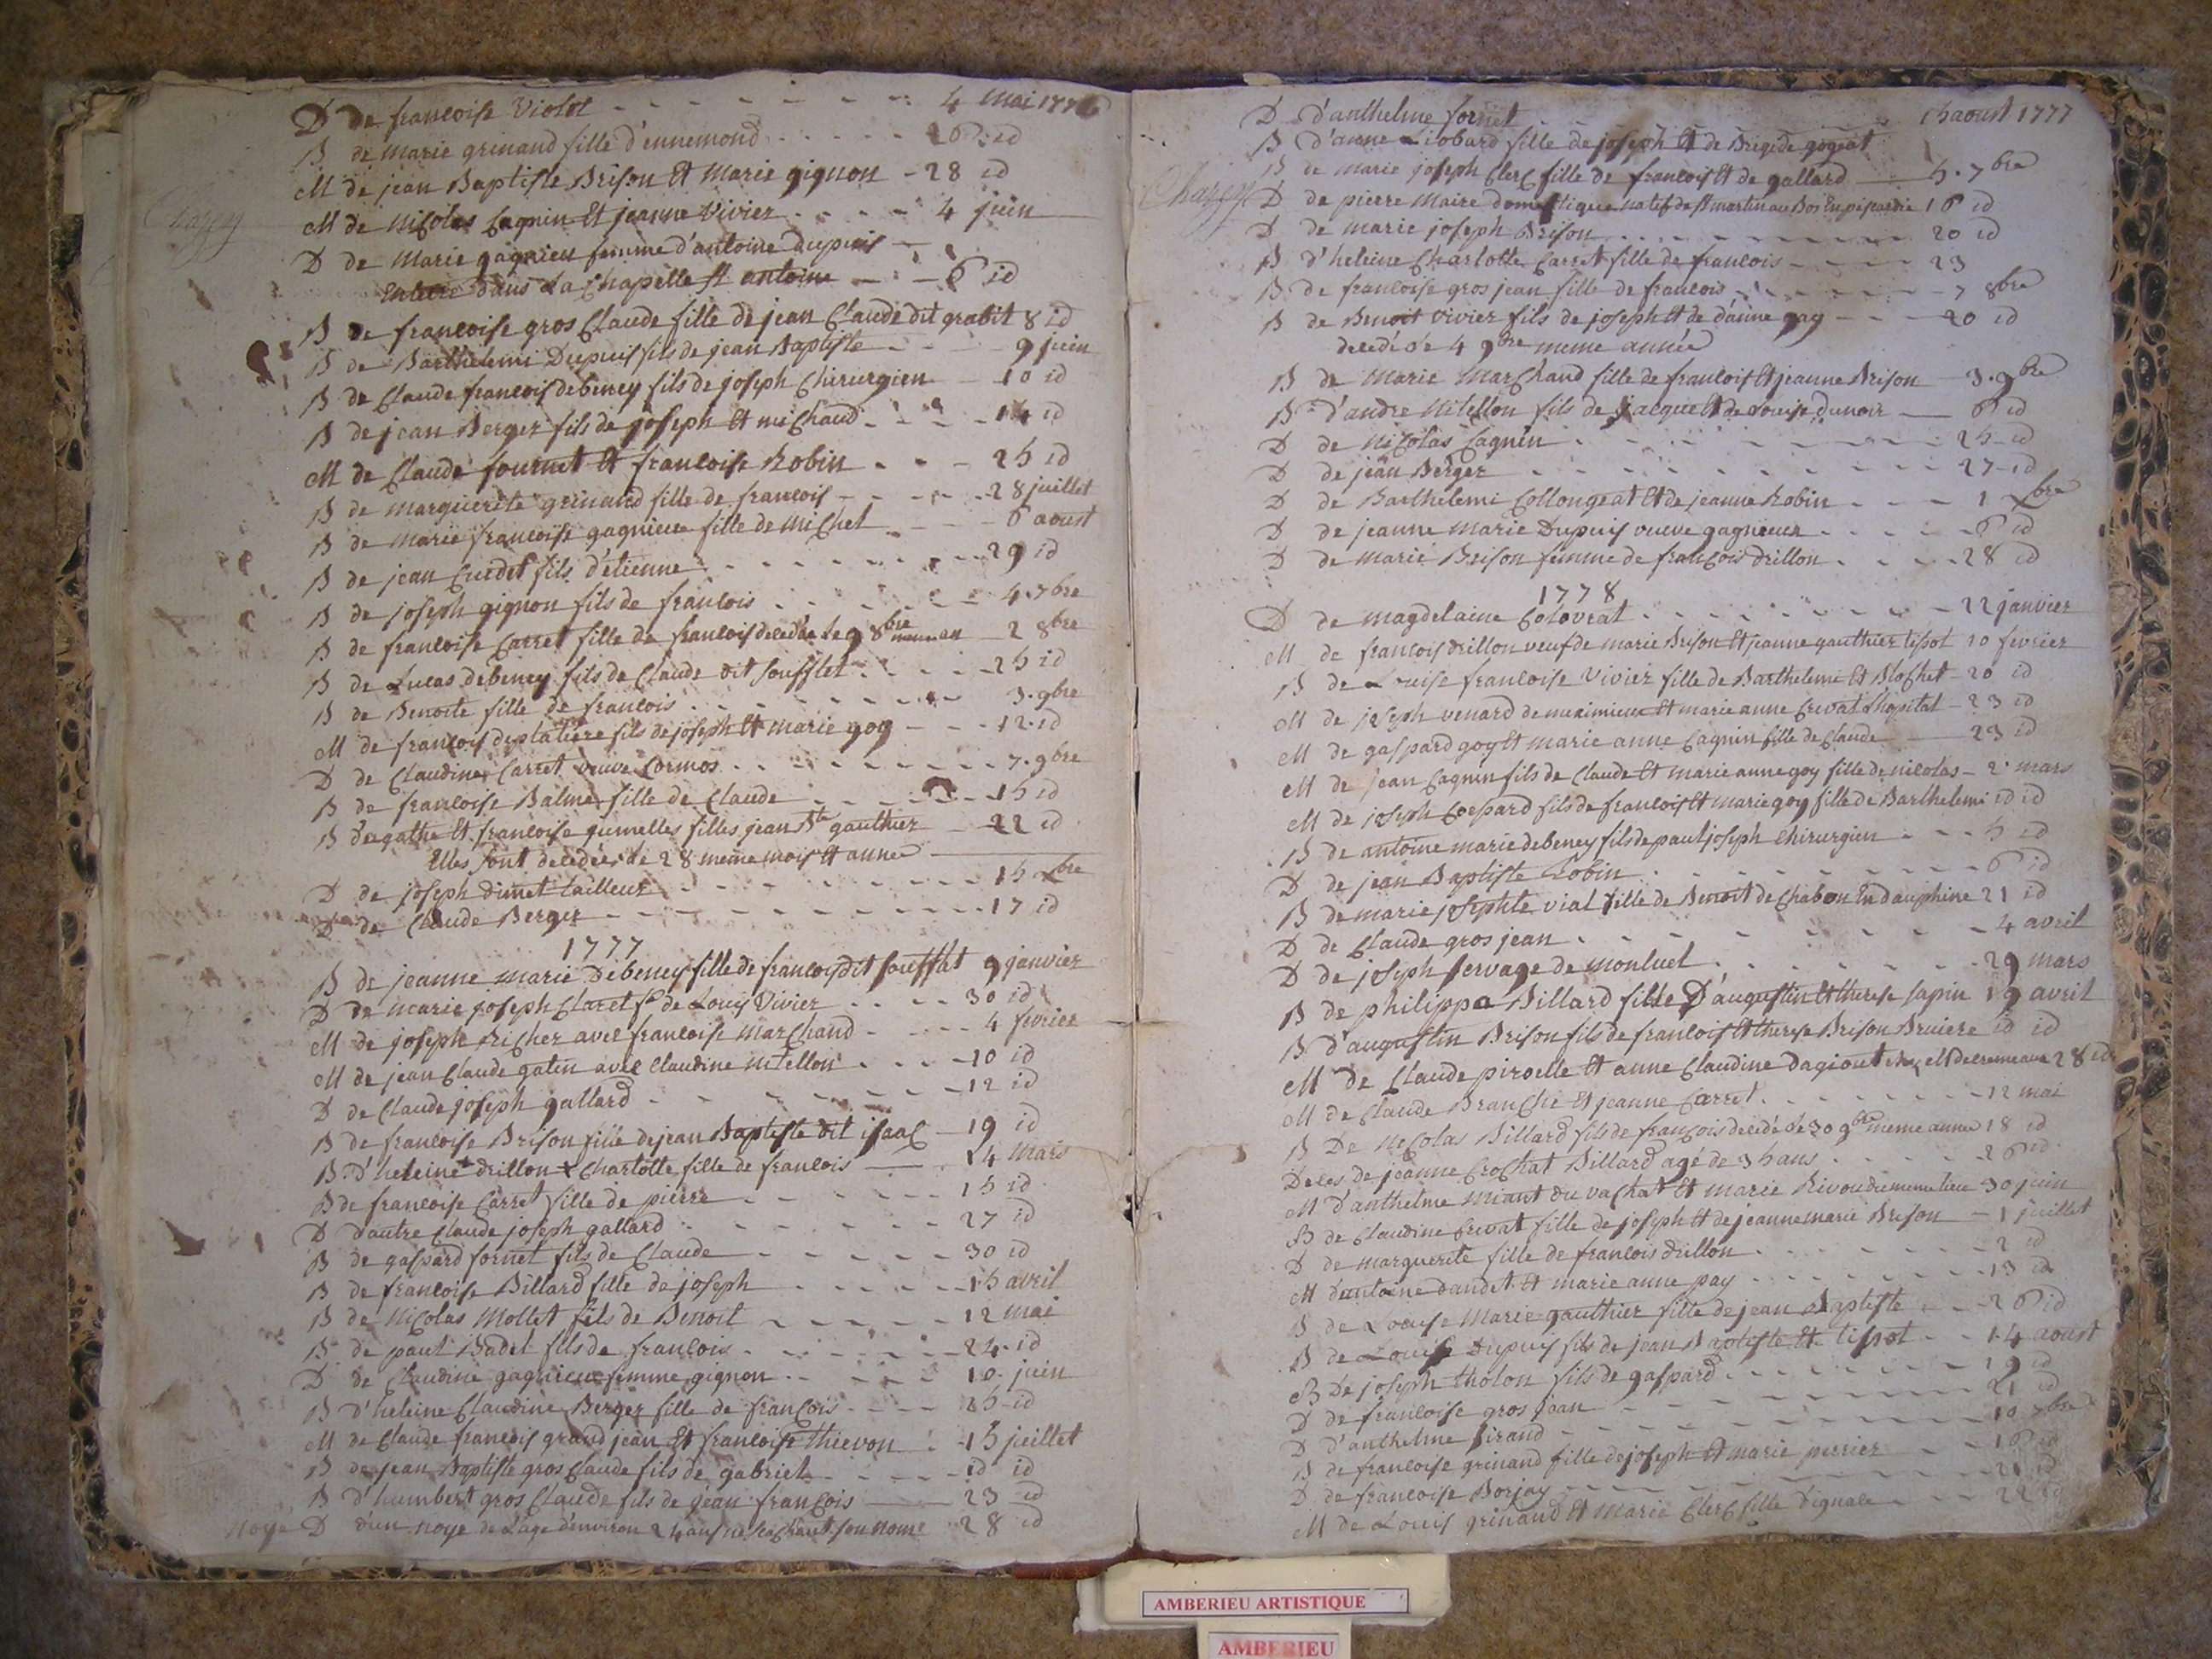 D de francoise Violot 4 mai 1776
B de marie grinand fille d'ennemond 26 id
M de jean Baptiste Brison et marie gignon 28 id
Chazey
M de nicolas Cagnin et jeanne Vivier 4 juin
D de marie gagnieu femme d'antoine dupuis
dans La Chapelle st antoine 6 id
B de francoise gros Claude fille de jean Claude dit grabit 8 id
B de Barthelemi Dupuis fils de jean Baptiste 9 juin
B de Claude francois debeney fils de joseph Chirurgien 10 id
B de jean Berger fils de joseph et michaud 14 id
M de Claude fournet et francoise Robin 25 id
B de marguerite grinand fille de francois 28 juillet
B de marie francoise gagnieue fille de michel 6 aoust
B de jean fils d'étienne 29 id
B de joseph gignon fils de francois 4 7bre
B de francoise Carret fille de francois decedée Le 9 8bre meme an 2 8bre
B de Lucas debeney fils de Claude dit soufflet 25 id
B de Benoite fille de francois 3 9bre
M de francois deplatiere fils de joseph et marie goy 12 id
D de Claudine Carret veuve Cormos 7 9bre
B de francoise Balme fille de Claude 15 id
B d'agathe et francoise jumelles filles jean Bte gauthier 22 id
Elles sont decedées le 28 meme mois et année
D de joseph dimet tailleur 15 Xbre
D de Claude Berger 17 id
1777
B de jeanne marie Debeney fille de francois dit soufflat 9 janvier
D de marie joseph Claret fe de Louis Vivier 30 id
M de joseph Richer avec francoise marchand 4 fevrier
M de jean Claude gatin avec Claudine nitellon 10 id
D de Claude joseph gallard 12 id
B de francoise Brison fille de jean Baptiste dit isaac 19 id
B d'heleine drillon Charlotte fille de francois 14 mars
B de francoise Carret fille de pierre 15 id
D d'autre Claude joseph gallard 27 id
B de gaspard fornet fils de Claude 30 id
B de francoise Billard fille de joseph 15 avril
B de nicolas Mollet fils de Benoit 12 mai
B de paul Badet fils de francois 24 id
D de Claudine gagnieu femme gignon 10 juin
B d'heleine Claudine Berger fille de francois 25 id
M de Claude francois grand jean et francoise thievon 15 juillet
B de jean Baptiste gros Claude fils de gabriel id id
B d'humbert gros Claude fils de jean francois 23 id
noyé D d'un noyé de L'age d'environ 24 ans ne sachant son nom 28 id
D d'anthelme fornet 15 aoust 1777
B d'anne Liobard fille de joseph et de Brigide gogeat
B de marie joseph Clerc fille de francois et de gallard 5 7bre
Chazey D de pierre Maire domestique natif de st martin au Bos En picardie 16 id
D de marie joseph Brison 20 id
B d'heleine Charlotte Carret fille de francois 23
B de francoise gros jean fille de francois 7 8bre
B de Benoit Vivier fils de joseph et de d'anne gay 20 id
decedé Le 4 9bre meme année
B de Marie Marchand fille de francois et jeanne Brison 3 9bre
B d'andre nitellon fils de jacque et de Louise dunoir 6 id
D de nicolas Cagnin 25 id
D de jean Berger 27 id
D de Barthelemi Collongeat et de jeanne Robin 1 Xbre
D de jeanne marie Dupuis veuve gagnieux 6 id
D de marie Brison femme de francois drillon 28 id
1778
D de magdelaine Colovrat 22 janvier
M de francois drillon veuf de marie Brison et jeanne gauthier tissot 10 fevrier
B de Louise francoise Vivier fille de Barthelemi et Blochet 20 id
M de joseph venard de meximieux et marie anne Crevat L'hopital 23 id
M de gaspard goy et marie anne Cagnin fille de Claude 23 id
M de jean Cagnin fils de Claude et marie anne goy fille de nicolas 2 mars
M de joseph fils de francois et marie goy fille de Barthelemi id id
B de antoine marie debeney fils de paul joseph chirurgien 5 id
D de jean Baptiste Robin 6 id
B de marie josephte vial fille de Benoit de Chabon En dauphine 21 id
D de Claude gros jean 4 avril
D de joseph servage de monluel 29 mars
B de philippa Billard fille D'augustin et therese sapin 19 avril
B d'augustin Brison fils de francois et therese Brison Bruiere id id
M de Claude piroelle et anne Claudine Dagiout 28 id
M de Claude Branche et jeanne Carret 12 mai
B De nicolas Billard fils de francois decedé Le 30 9bre meme année 18 id
Deces de jeanne Crochat Billard agé de 35 ans 26 id
M d'anthelme miant du vachat et marie Rivou du meme lieu 30 juin
B de Claudine Crevat fille de joseph et de jeanne marie Brison 1 juillet
D de marguerite fille de francois drillon 2 id
M d'antoine daudet et marie anne pay 13 id
B de Louise Marie gauthier fille de jean Baptiste 26 id
B de Louis Dupuis fils de jean Baptiste et tissot 14 aoust
B de joseph tholon fils de gaspard 19 id
D de francoise gros jean 21 id
D d'anthelme sirand 10 7bre
B de francoise grinand fille de joseph et marie perrier 16 id
D de francoise Borjay 21 id
M de Louis grinand et marie Clerc fille d'ignace 22 id
AMBERIEU ARTISTIQUE
AMBERIEU